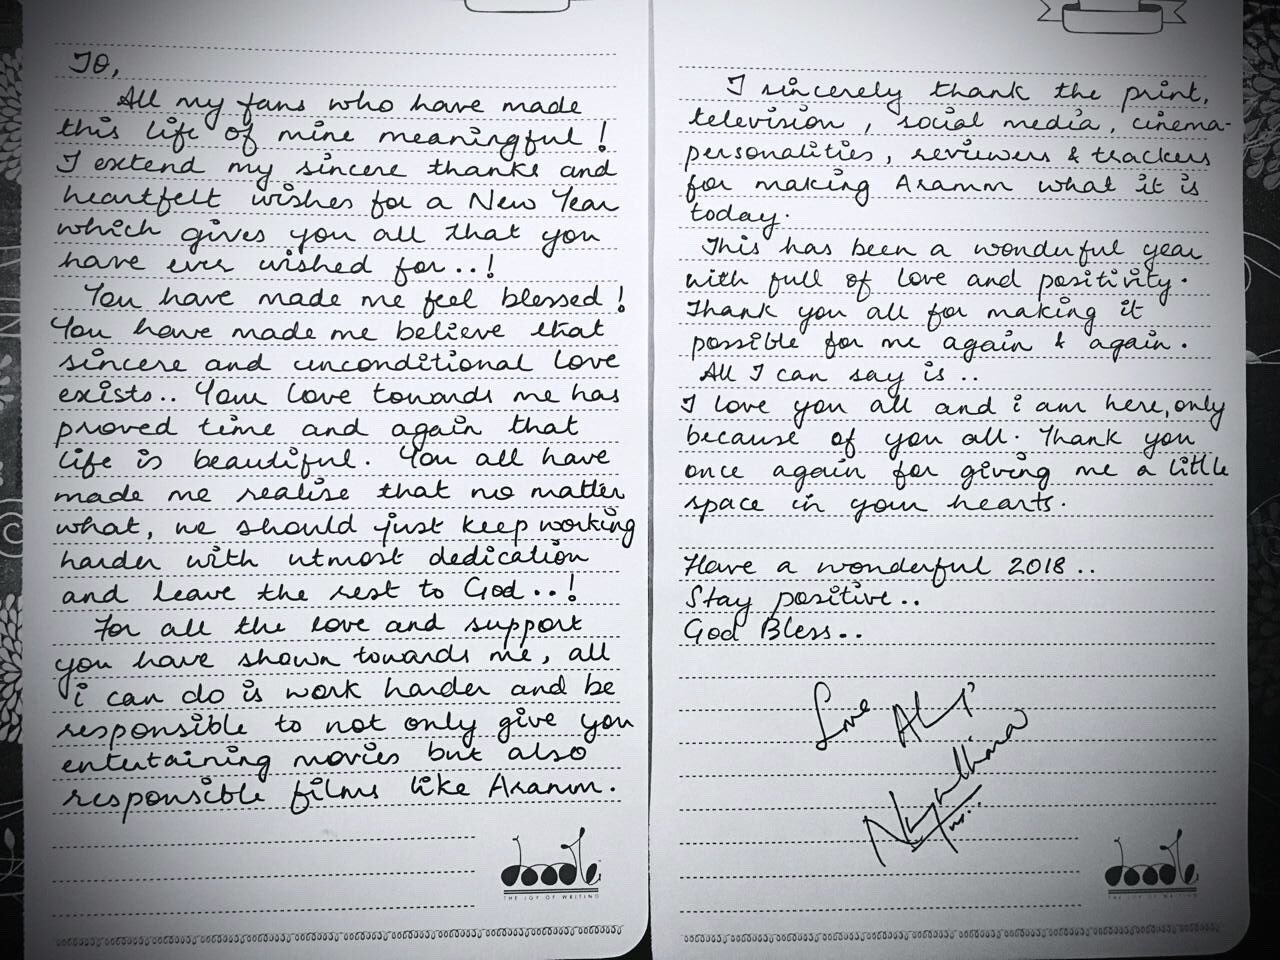 To,
All my fans who have made
this life of mine meaningful!
I extend my sincere thanks and
heartfelt wishes for a New Year
which gives you all that you
have ever wished for..!
You have made me feel blessed!
You have made me believe that
sincere and unconditional love
exists.. Your love towards me has
proved time and again that
life is beautiful. You all have
made me realise that no matter
what, we should just keep working
harder with utmost dedication
and leave the rest to God..!
For all the love and support
you have shown towards me, all
i can do is work harder and be
responsible to not only give you
entertaining movies but also
responsible films like Aramm.
doodle
THE JOY OF WRITING
I sincerely thank the print,
television, social media, cinema-
personalities, reviewers & trackers
for making Aramm what it is
today.
This has been a wonderful year
with full of love and positivity.
Thank you all for making it
possible for me again & again.
All I can say is..
I love you all and i am here, only
because of you all. Thank you
once again for giving me a little
space in your hearts.
Have a wonderful 2018..
Stay positive..
God Bless..
Love
Nayanthara
doodle
THE JOY OF WRITING